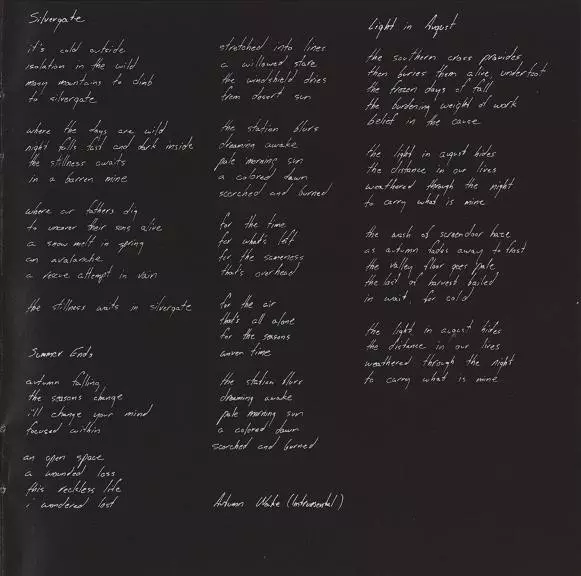 Silvergate
it's cold outside
isolation in the wild
many mountains to climb
to silvergate
where the days are wild
night falls fast and dark inside
the stillness awaits
in a barren mine
where our fathers dig
to uncover their sons alive
a snow melt in spring
an avalanche
a rescue attempt in vain
the stillness waits in silvergate
Summer Ends
autumn falling,
the seasons change
i'll change your mind
focused within
an open space
a wounded loss
this reckless life
i wandered lost
stretched into lines
a willowed stare
the windshield dries
from desert sun
the station blurs
dreaming awake
pale morning sun
a colored dawn
scorched and burned
for the time
for what's left
for the sameness
that's overhead
for the air
that's all alone
for the seasons
woven time
the station blurs
dreaming awake
pale morning sun
a colored dawn
scorched and burned
Autumn Wake (Instrumental)
Light in August
the southern cross provides
then buries them alive, underfoot
the frozen days of fall
the burdening weight of work
belief in the cause
the light in august hides
the distance in our lives
weathered through the night
to carry what is mine
the wash of screendoor haze
as autumn fades away to frost
the valley floor goes pale
the last of harvest bailed
in wait, for cold
the light in august hides
the distance in our lives
weathered through the night
to carry what is mine